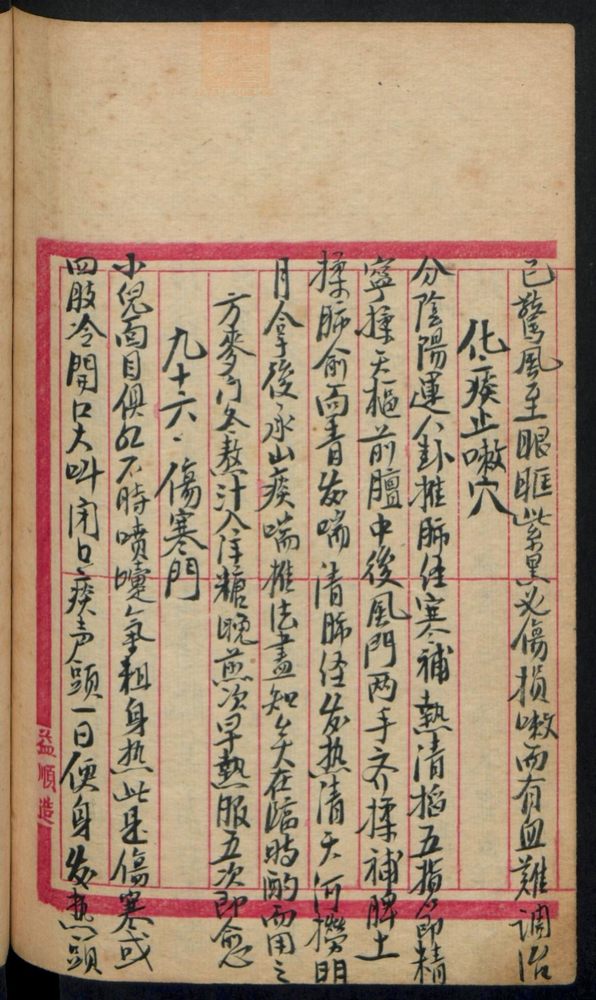 已驚風至眼眶紫黑必傷損嗽而有血難調治
化痰止嗽穴
分陰陽運八卦推肺经寒補熱清掐五指節精
寧揉天樞前膻中後風門两手齐揉補脾土
揉肺俞面青发喘清肺经发热清天河撈明
月拿後承山痰喘推法盡知矣在臨時酌而用之
方麥门冬熬汁入洋糖晚煎次早熱服五次即愈
九十六·傷寒門
小児面目俱红不時噴嚏氣粗身热此是傷寒或
四肢冷開口大叫闭口痰声頭一日便身发热頭
益順造